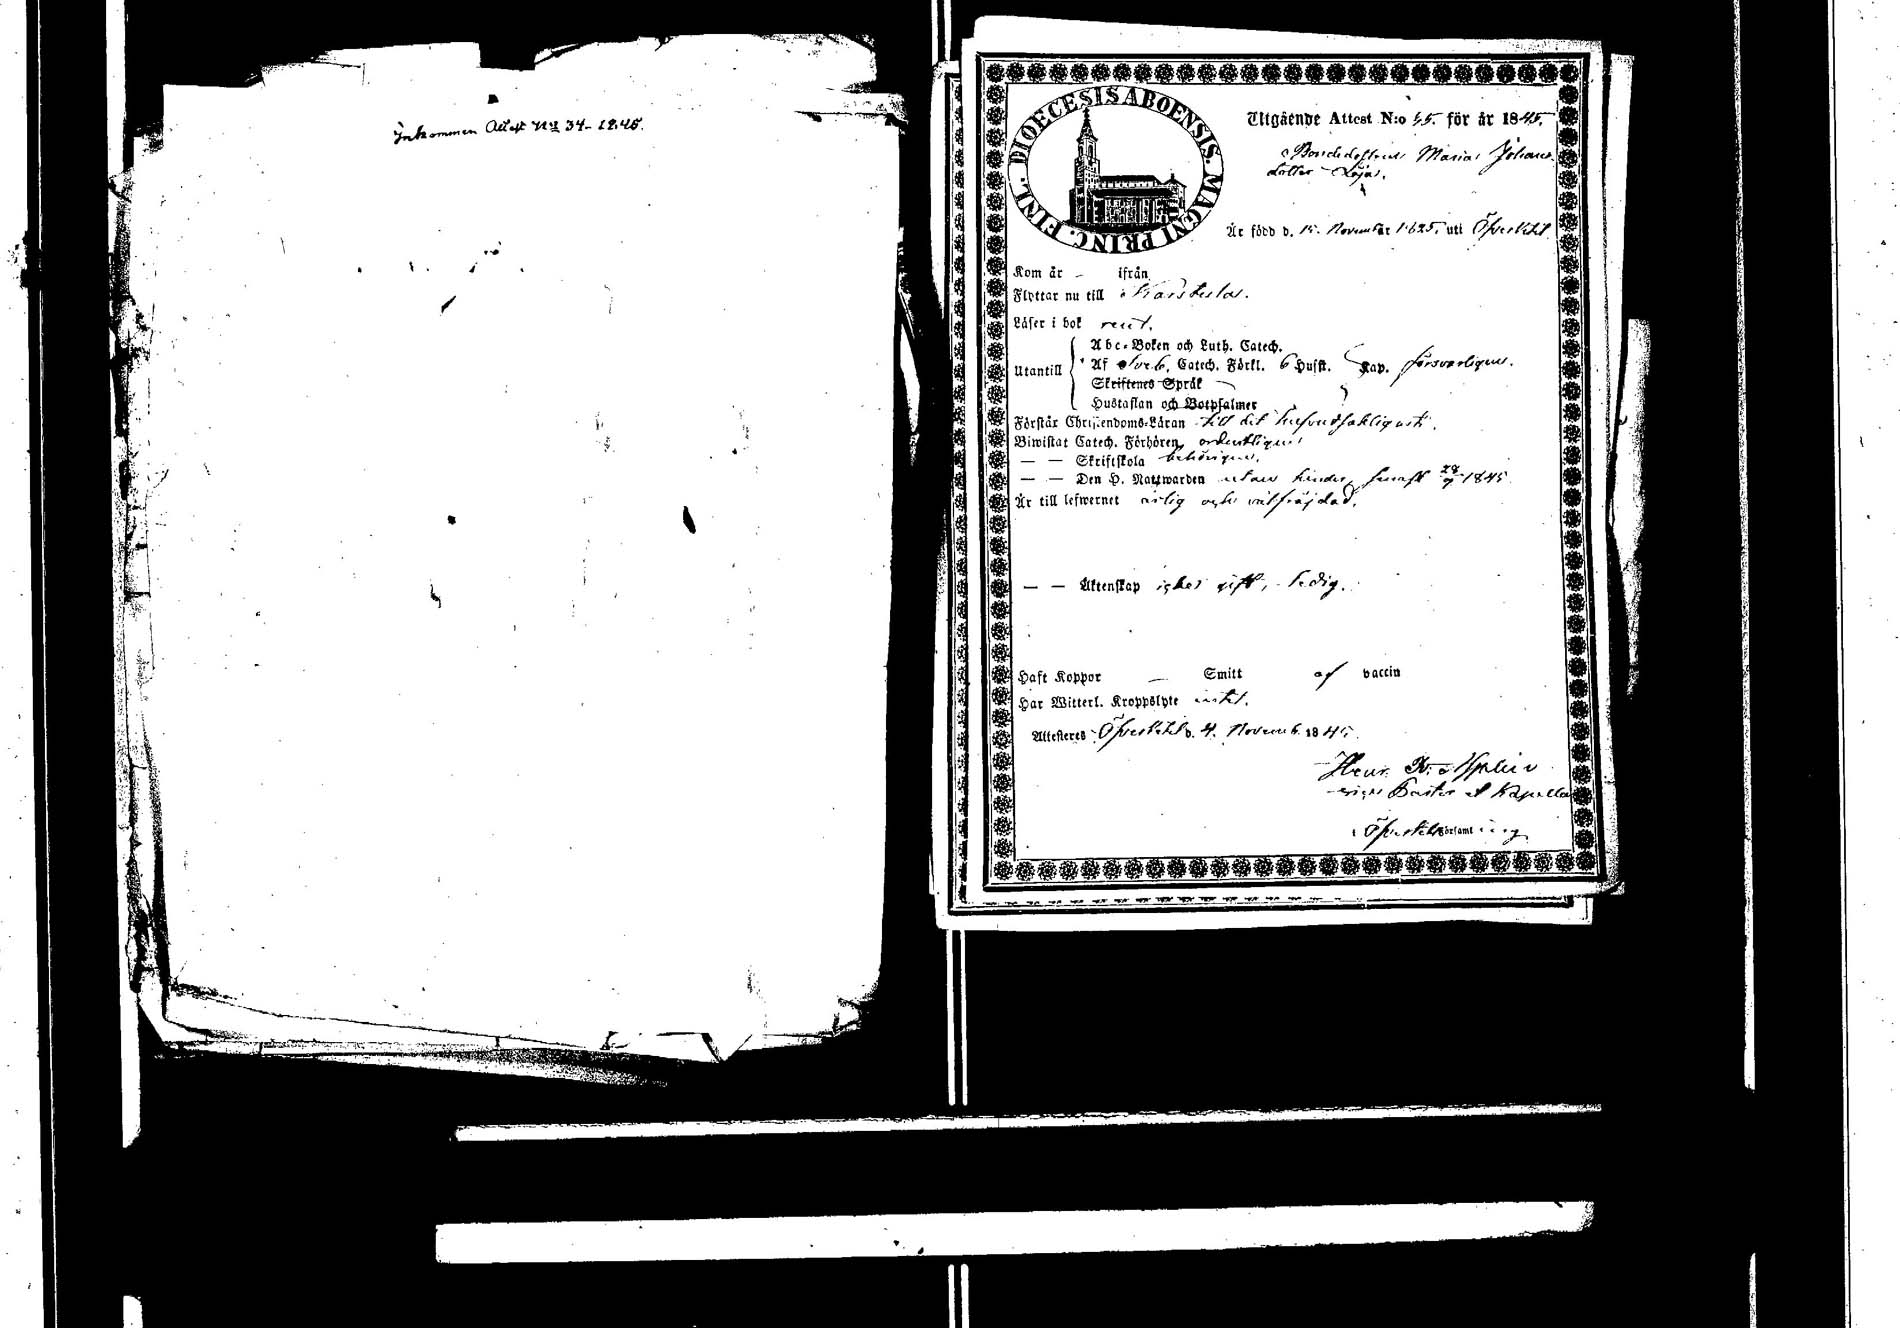 Inkommen Attest No 34 - 1845.
DIOECESIS ABOENSIS. MAGNI PRINC. FINL.
Utgående Attest N:o 55. för år 1845.
Bondedottren Maria Johans
dotter
Är född d. 15. November 1825. uti Öfverketil
Kom år - ifrån
Flyttar nu till Karstula.
Läser i bok rent.
Abc-Boken och Luth. Catech.
Utantill Af Sveb. Catech. Förkl. 6 Hufst. Kap. försvarligen.
Skriftenes Språk
Hustaflan och Botpsalmer
Förstår Christendoms-Läran till det hufvudsakligaste.
Biwistat Catech. Förhören ordentligen
— — Skriftskola behörigen.
— — Den H. Nattwarden utan hinder, senast 28/9 1845
Är till lefwernet ärlig och välfräjdad.
— — Äktenskap icke gift, ledig.
Haft Koppor — Smitt af vaccin
Har Witterl. Kroppslyte intet.
Attesteras Öfverketil d. 4. Novemb. 1845.
Henr.
Pastor et Kapellan
i Församling